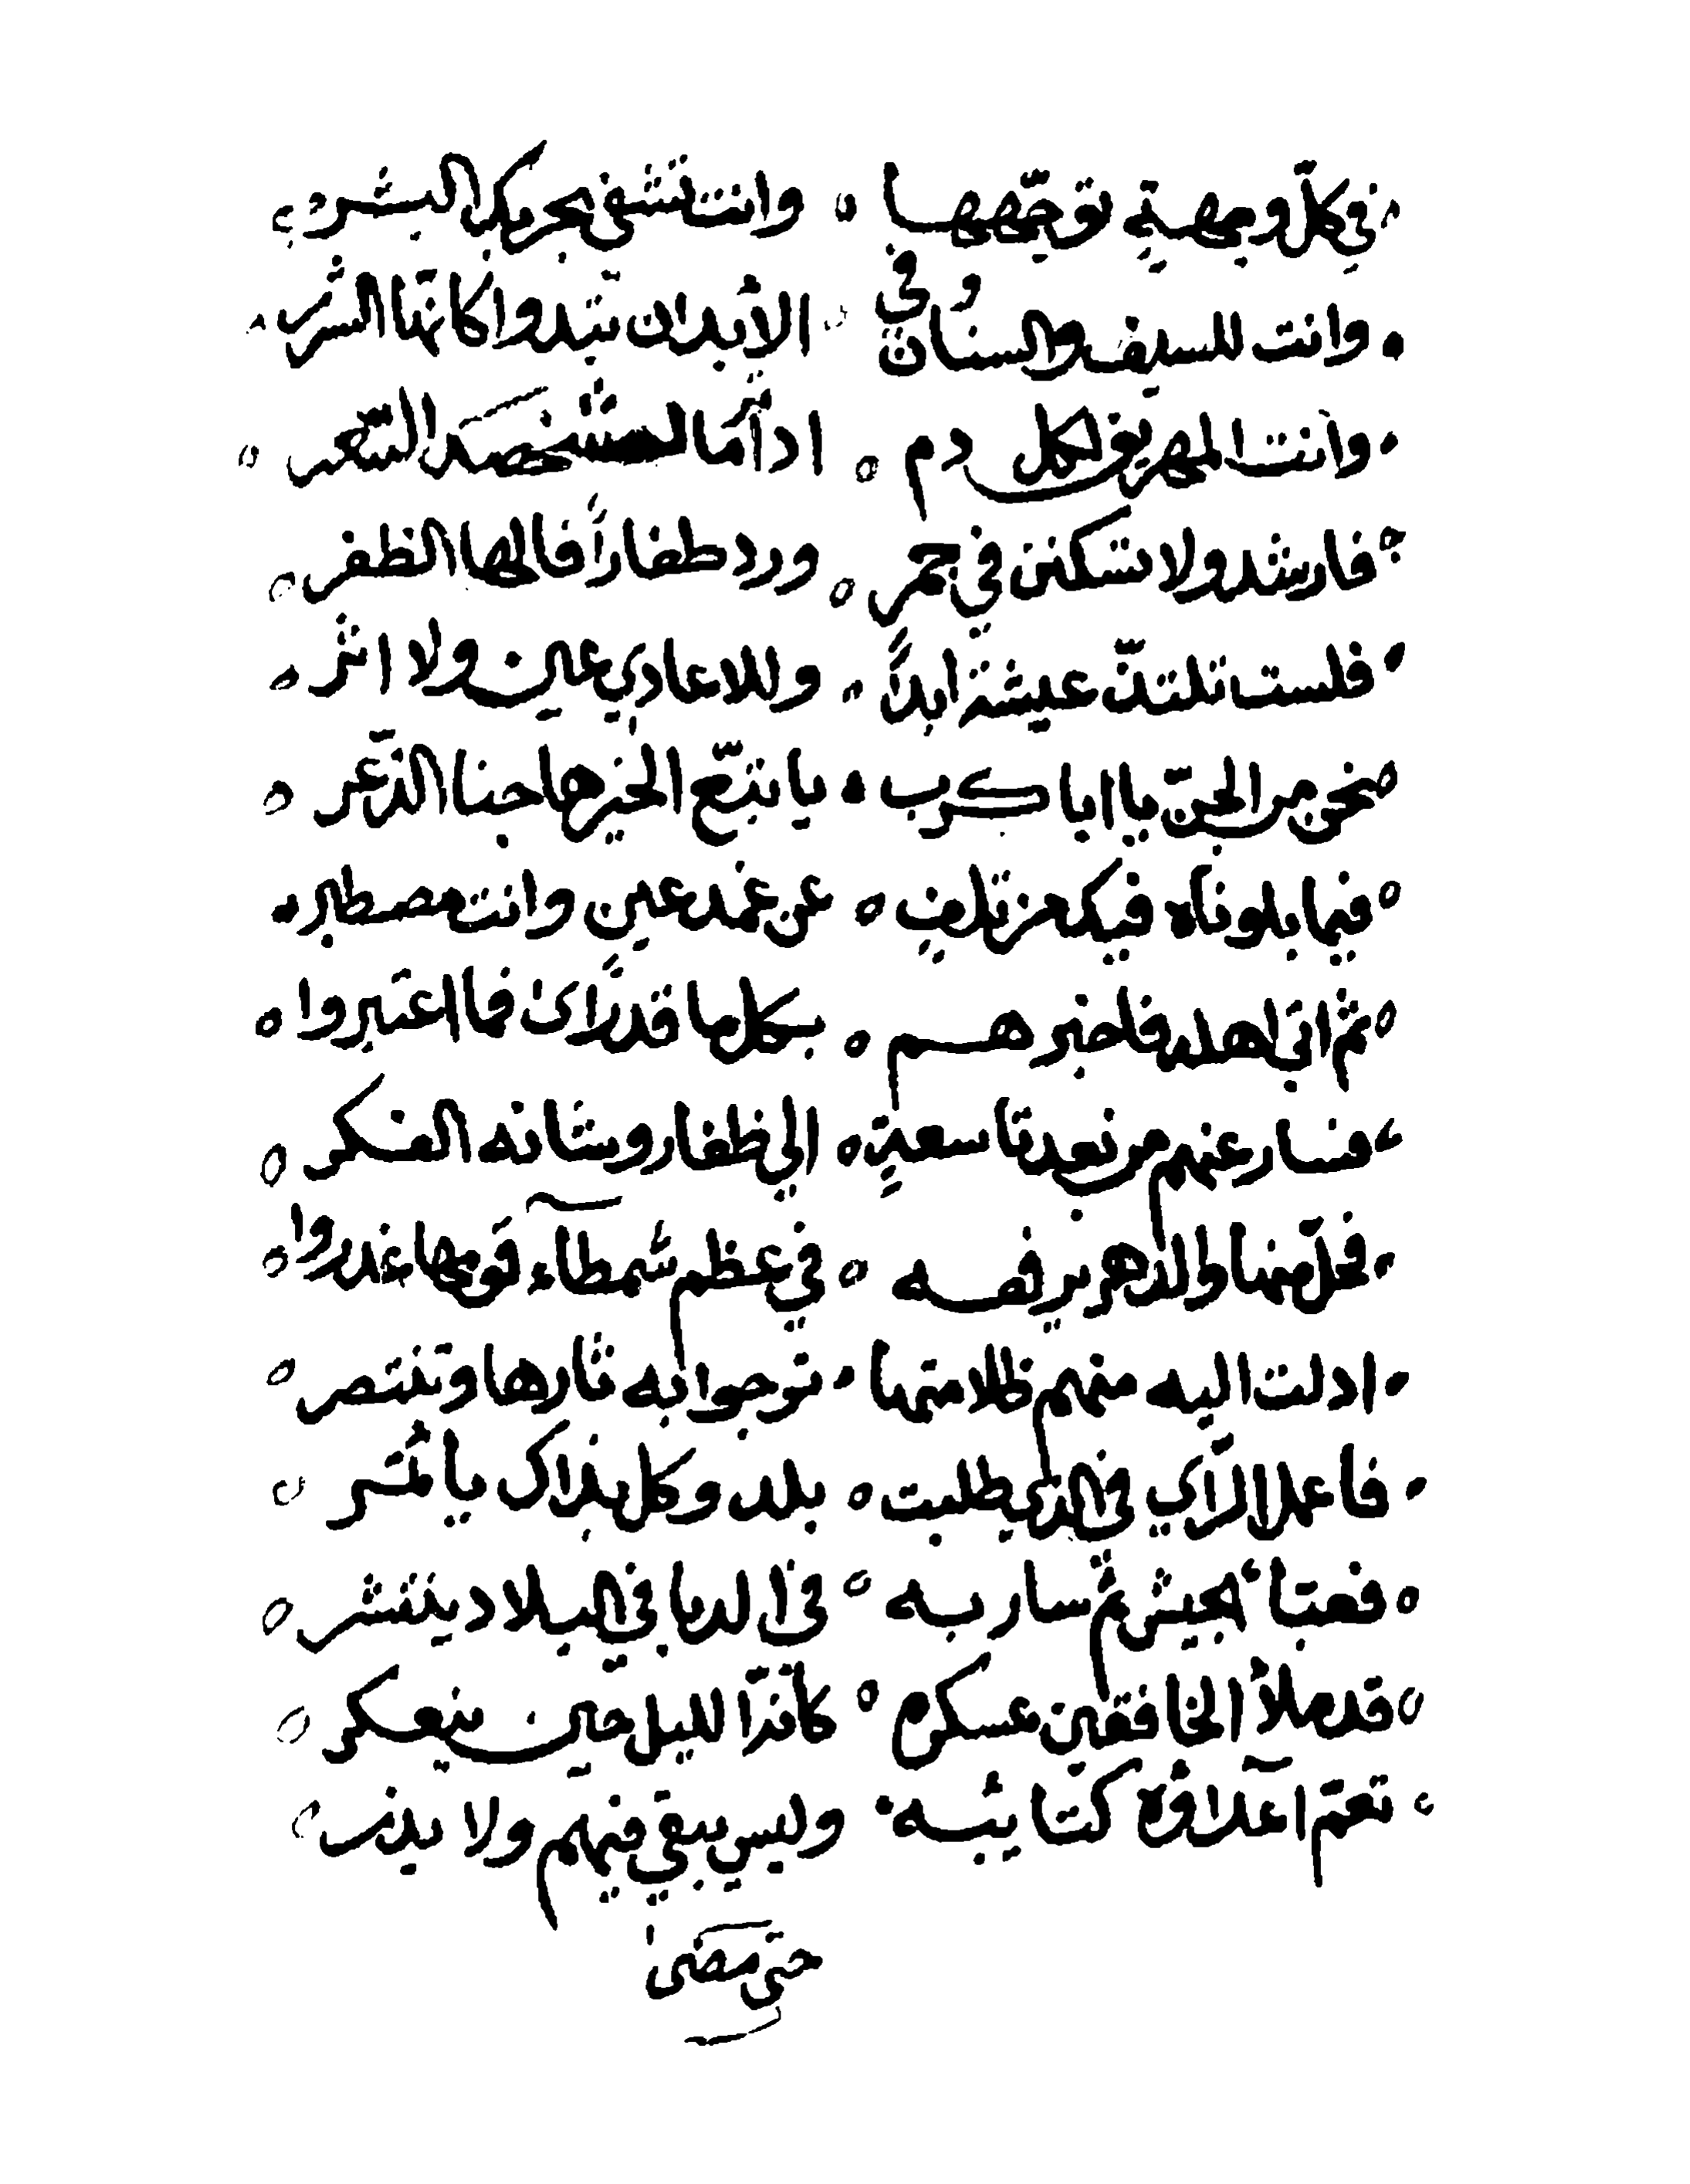 في كلّ وجهةٍ توجّهها وانت تشقى بحربك البشر
وانت للسيف والسنان وفي الأبدان تبدوا كانها الشرر
وانت المهريق كل دم اذا تراما لشخصك السفر
فارشد ولا تسكنن في خمر ورد ظفاراً فالها الظفر
فلست تلتذّ عيشة ابداً وللاعادي عين ولا اثر
نحن من الجنّ يا ابا كرب يا تبّع الخير هاجنا الذعر
فيما بلوناه فيك من تلف عن عمد عين وانت مصطبر
ثم اتى اهله فاخبرهم بكل ما قد رأى فما اعتبروا
فسار عنهم من بعد تاسعة الي ظفار وشانه الفكر
فحلّ فيها والدهر يرفعه في عظم شمطآء قومها غدروا
ادلت اليه منهم ظلامتها ترجوا به ثارها وتنتصر
فاعمل الرّاي في الذي طلبت بلد وكل بذاك يأتمر
فعبّا الجيش ثم سار به في الدبا في البلاد ينتشر
قد ملأ الخافقين عسكره كأنه الليل حين يعكر
تعمّ اعدآؤه كتايبه وليس يبقي فيهم ولا يذر
حتى مضى